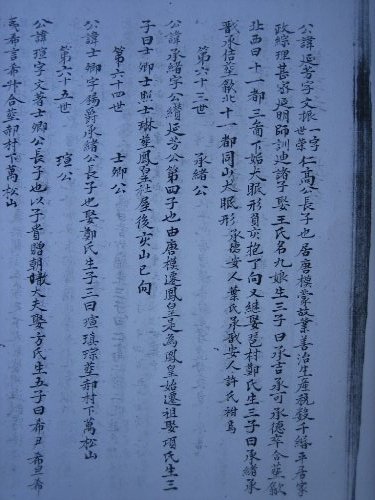 公諱延芳字文根一字世榮仁高公長子也居唐模業善治生產稅錢千緡平居家
政綜理嘗家延明師訓迪諸子娶王氏名九娘生三子曰承吉承可承德卒合塟歙
北西曰十一都三啚下始大眠形負亥抱丁向又继娶琶村鄭氏生三子曰承緒承
承信塟歙北十一都同山大眠形 承德安人葉氏承 安人許氏祔焉
第六十三世 承緒公
公諱承緒字公纘延芳公第四子也由唐模遷鳳皇是為鳳皇始遷祖娶項氏生三
子曰士卿士照士琳塟鳳皇社屋後亥山巳向
第六十四世 士卿公
公諱士卿字錫爵承緒公長子也娶鄭氏生子三曰瑄瑱琮塟郝村下萬松山
第六十五世 瑄公
公諱瑄字文著士卿公長子也以子貴贈朝 大夫娶方氏生五子曰希丑希旦希
希言希升合塟郝村下萬松山